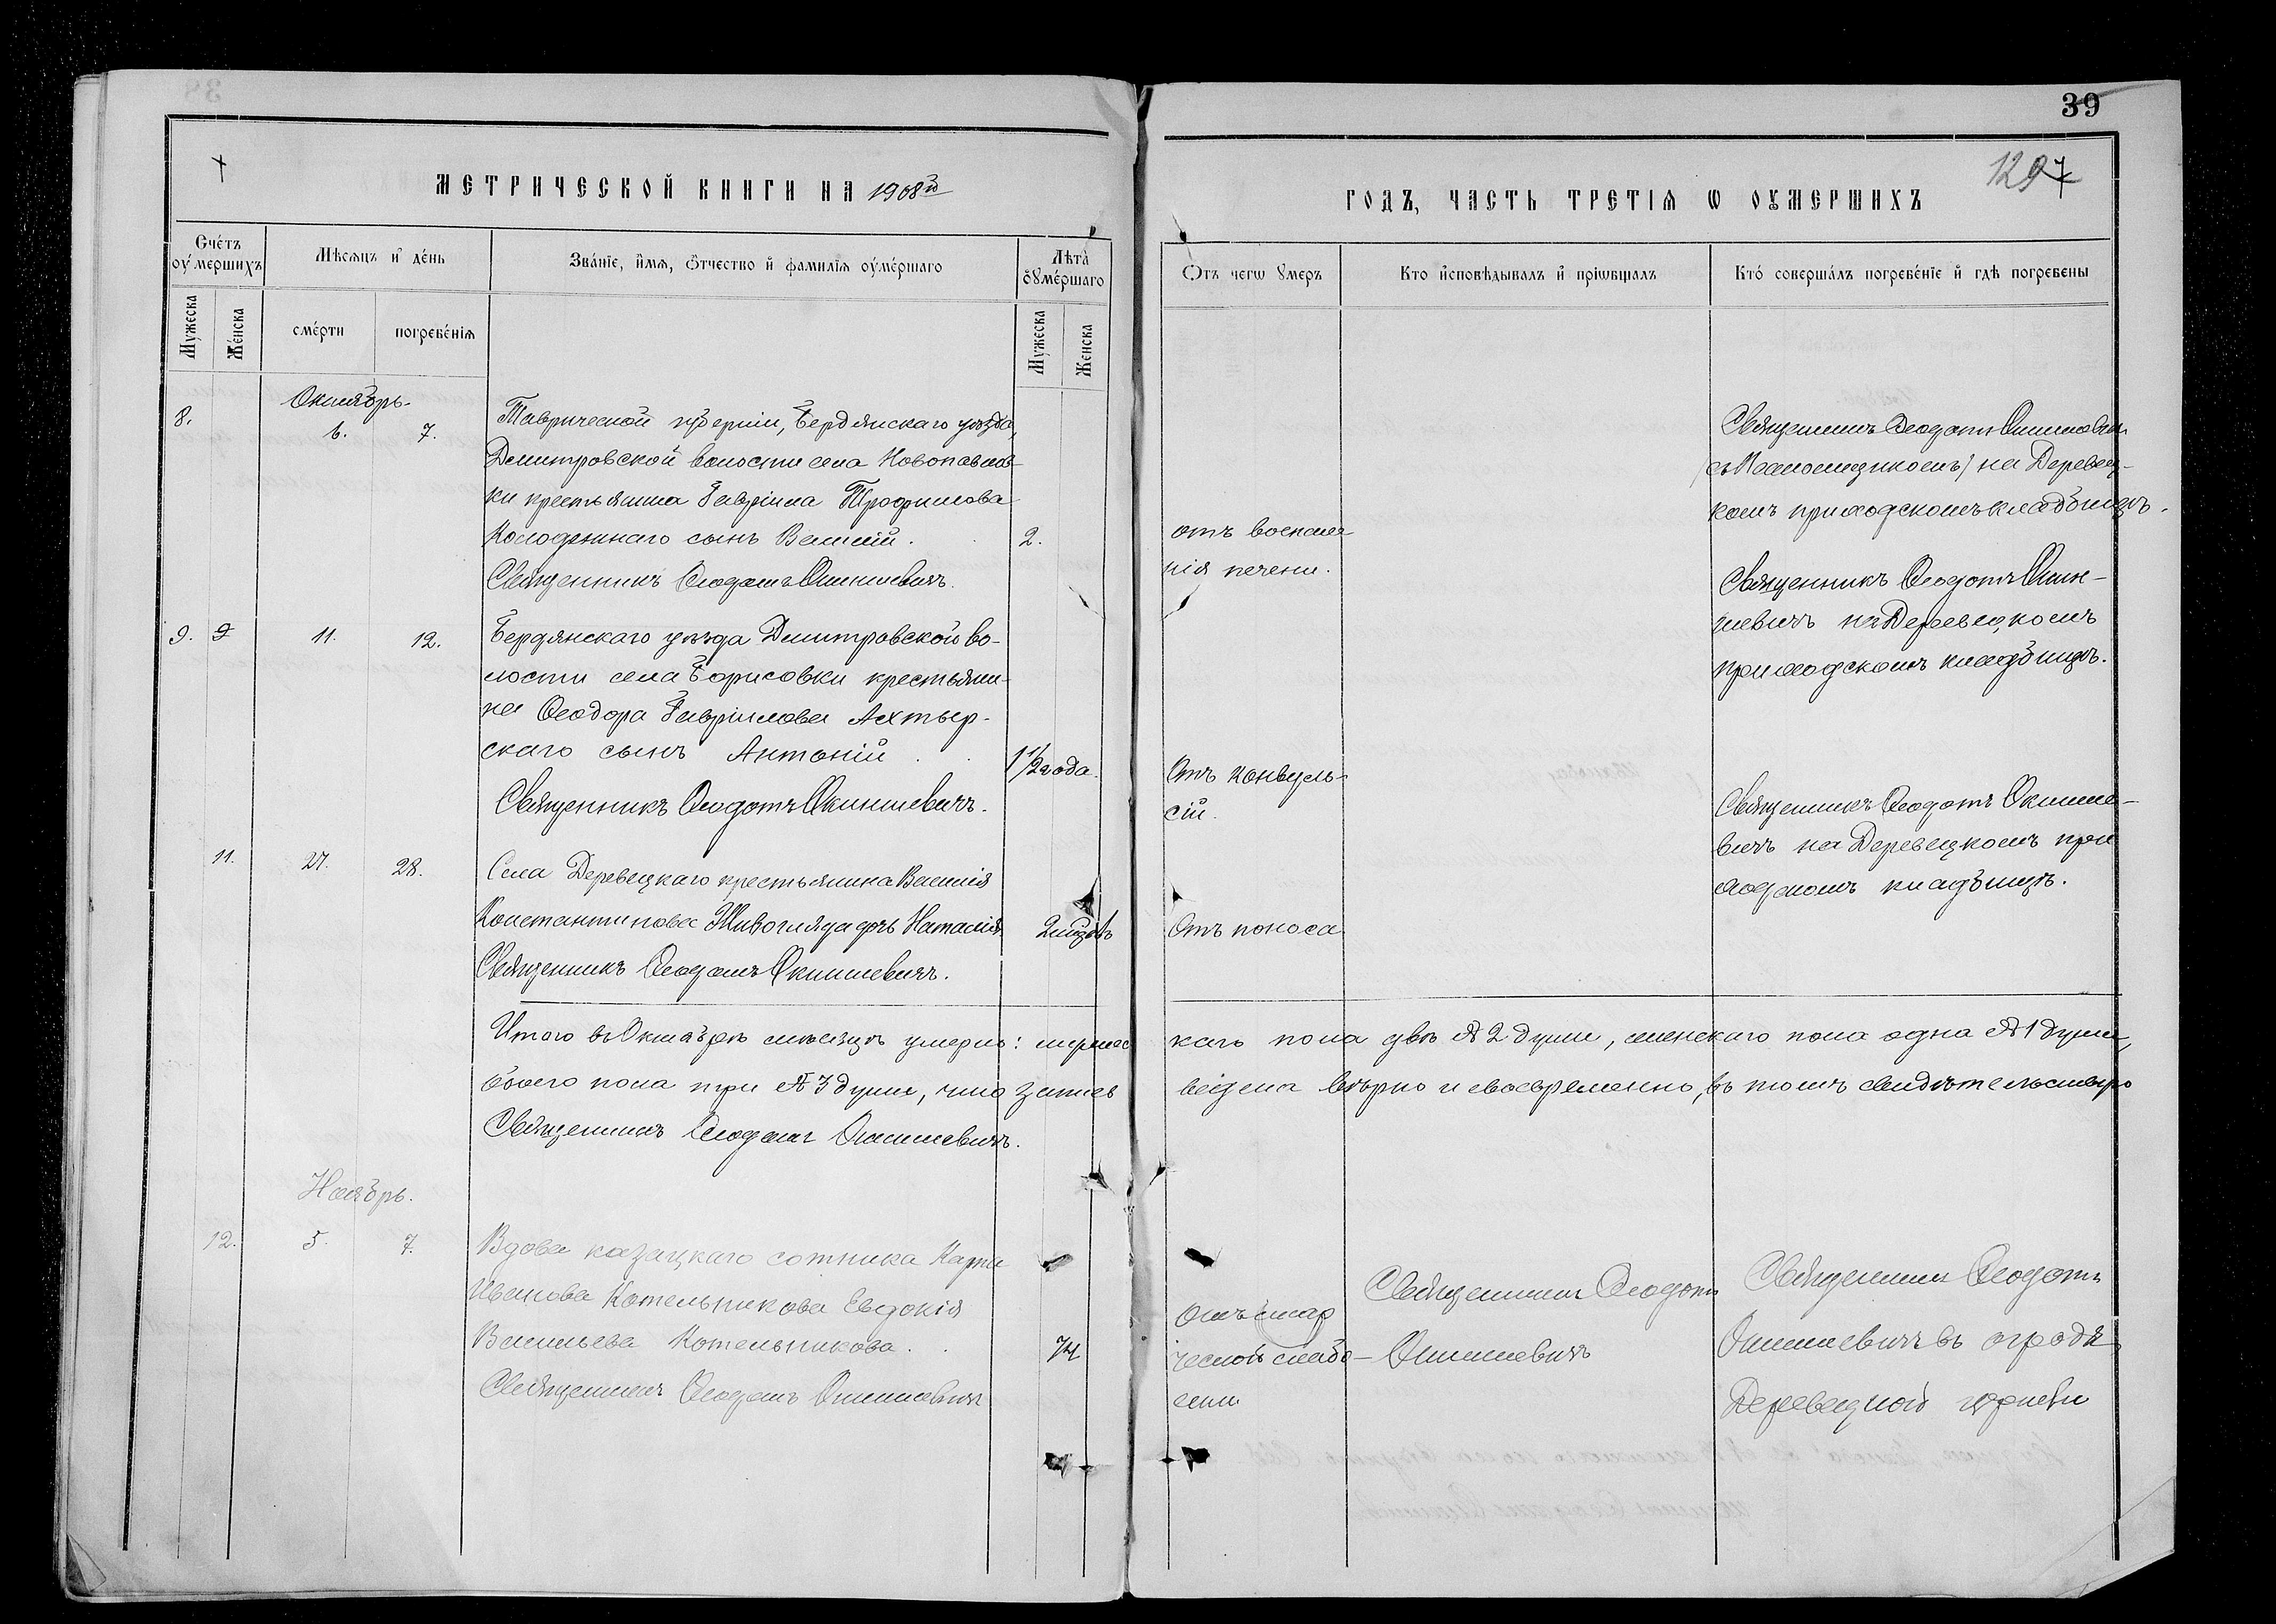 39
1297
МЕТРИЧЕСКОЙ КНИГИ НА 1908й
ГОДЪ, ЧАСТЬ ТРЕТІЯ Ѡ ОУМЕРШИХЪ
Счётъ оумершихъ
Мѣсяцъ и день
Званіе, имя, ѿтчество и фамилія оумершаго
Лѣта оумершаго
Ѿтъ чегѡ умеръ
Кто исповѣдывалъ и пріѡбщалъ
Кто совершалъ погребеніе и гдѣ погребены
Мужеска
Женска
смерти
погребенія
Мужеска
Женска
Октябрь.
8.
6.
7.
Таврической губерніи, Бердянскаго уѣзда,
Дмитровской волости села Новопавлов-
ки крестьянина Гавріила Трофимова
Колодяжнаго сынъ Василій.
2.
Священникъ Ѳеодотъ Окиншевичъ.
отъ воспале
нія печени.
Священникъ Ѳеодотъ Окиншевич
съ Псаломщикомъ) на Деревец-
комъ приходскомъ кладбищѣ.
9. 9
11.
12.
Бердянскаго уѣзда Дмитровской во-
лости села Борисовки крестьяни-
на Ѳеодора Гавріилова Ахтыр-
скаго сынъ Антоній
1 1/2 года.
Священникъ Ѳеодотъ Окиншевичъ.
Отъ конвуль-
сій.
Священникъ Ѳеодотъ Окин-
шевичъ на Деревецкомъ
приходскомъ кладбищѣ.
11.
27.
28.
Села Деревецкаго крестьянина Василія
Константинова Живогляда дочь Наталія
2 мѣсяцъ
Священникъ Ѳеодотъ Окиншевичъ.
Отъ поноса
Священникъ Ѳеодотъ Окинше-
вичъ на Деревецкомъ при
ходскомъ кладбищѣ.
Итого въ Октябрѣ мѣсяцѣ умерло: мужес каго пола двѣ 2 души, женскаго пола одна 1 душа,
обоего пола три 3 души, что запись ведена вѣрно и своевременно, въ томъ свидѣтельствую
Священникъ Ѳеодотъ Окиншевичъ.
Ноябрь.
12.
5.
7.
Вдова казацкаго сотника Карпа
Иванова Котельникова Евдокія
Васильева Котельникова.
74
Священникъ Ѳеодотъ Окиншевичъ
Отъ стар
ческой слабо-
сти
Священникъ Ѳеодотъ
Окиншевичъ
Священникъ Ѳеодотъ
Окиншевичъ въ оградѣ
Деревецкой церкви